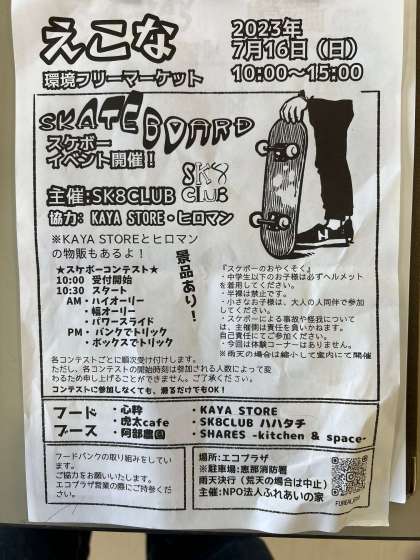 えこな
環境フリーマーケット
2023年
7月16日（日）
10:00〜15:00
SKATEBOARD
スケボー
イベント開催！
SK8
CLUB
主催:SK8CLUB
協力: KAYA STORE・ヒロマン
※KAYA STOREとヒロマン
の物販もあるよ！
景品あり！
★スケボーコンテスト★
10:00 受付開始
10:30 スタート
AM・ハイオーリー
・幅オーリー
・パワースライド
PM・バンクでトリック
・ボックスでトリック
『スケボーのおやくそく』
・中学生以下のお子様は必ずヘルメット
を着用してください。
・半裸は禁止です。
・小さなお子様は、大人の人同伴で参加
してください。
・スケボーによる事故や怪我について
は、主催側は責任を負いかねます。
自己責任にてご参加ください。
・今回は体験コーナーはありません。
※雨天の場合は縮小して室内にて開催
各コンテストごとに順次受け付けします。
ただし、各コンテストの開始時刻は参加される人数によって変
わるため申し上げることができません。ご了承ください。
コンテストに参加しなくても、滑るだけでもOK！
フード
ブース
・心粋
・虎太cafe
・阿部農園
・KAYA STORE
・SK8CLUB ハハタチ
・SHARES -kitchen & space-
フードバンクの取り組みをしていま
す。
ご協力をお願いいたします。
エコプラザ営業の際にご持参くださ
い。
場所:エコプラザ
※駐車場:恵那消防署
雨天決行（荒天の場合は中止）
主催:NPO法人ふれあいの家